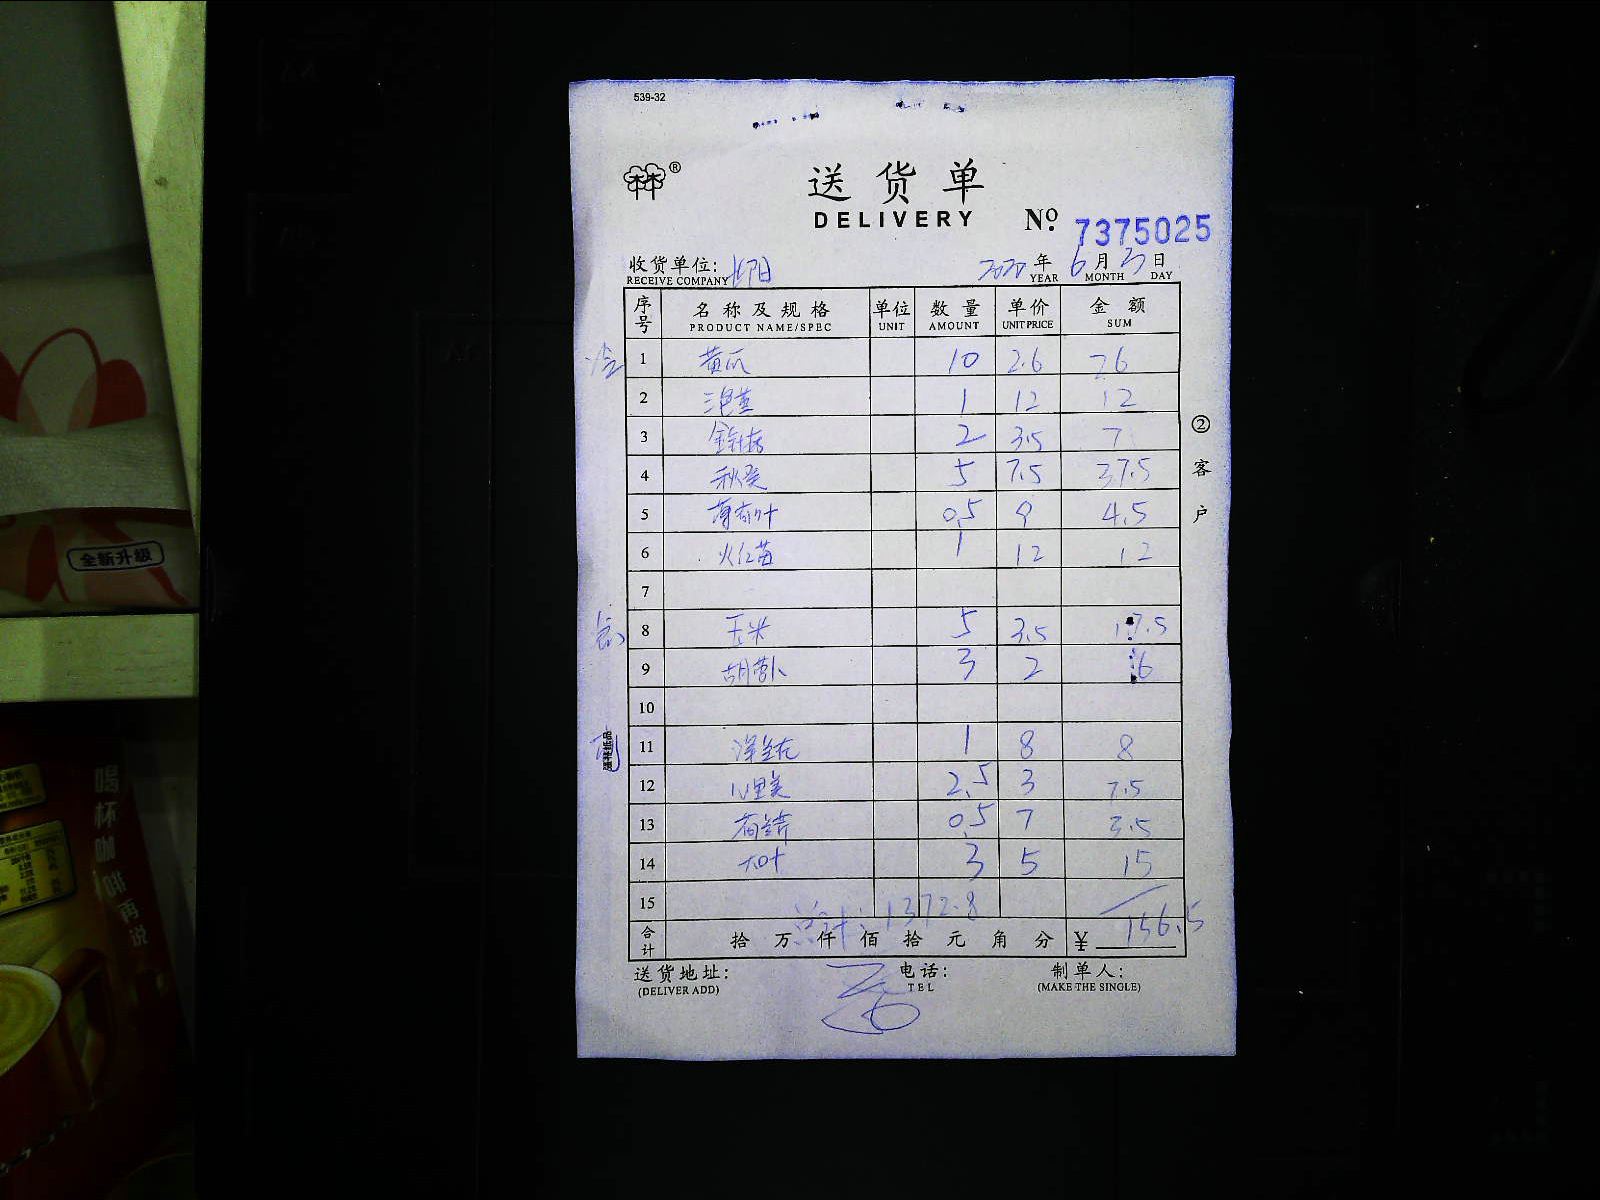 539-32
送货单
DELIVERY
No. 7375025
收货单位:
RECEIVE COMPANY
2020年6月3日
YEAR MONTH DAY
序号 名称及规格 单位 数量 单价 金额
PRODUCT NAME/SPEC UNIT AMOUNT UNIT PRICE SUM
1 黄瓜 10 2.6 26
2 1 12 12
3 金针菇 2 3.5 7
4 秋葵 5 7.5 37.5
5 薄荷叶 0.5 9 4.5
6 火红苗 1 12 12
7
8 玉米 5 3.5 17.5
9 胡萝卜 3 2 6
10
11 1 8 8
12 心里美 2.5 3 7.5
13 0.5 7 3.5
14 大叶 3 5 15
15
总计: 1372.8
合计 拾万仟佰拾元角分 ¥ 156.5
送货地址: 电话: 制单人:
(DELIVER ADD) TEL (MAKE THE SINGLE)
②客户
全新升级
喝杯咖啡再说